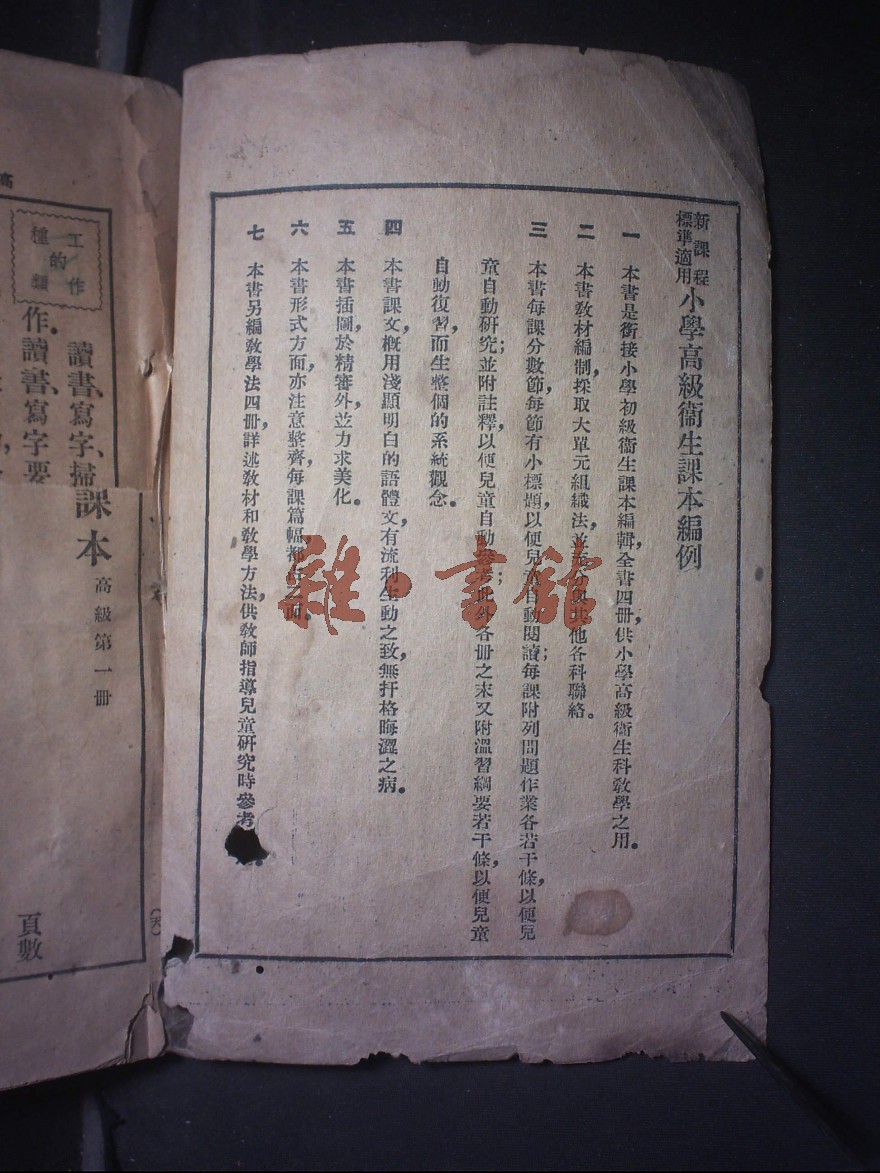 新課程標準適用小學高級衞生課本編例
一 本書是銜接小學初級衞生課本編輯,全書四冊,供小學高級衞生科敎學之用。
二 本書敎材編制,採取大單元組織法,並充分與其他各科聯絡。
三 本書每課分數節,每節有小標題,以便兒童自動閱讀;每課附列問題作業各若干條,以便兒
童自動研究;並附註釋,以便兒童自動參考;此外各冊之末又附溫習綱要若干條,以便兒童
自動復習,而生整個的系統觀念。
四 本書課文,槪用淺顯明白的語體文,有流利生動之致,無扞格晦澀之病。
五 本書插圖,於精審外,並力求美化。
六 本書形式方面,亦注意整齊,每課篇幅都
七 本書另編敎學法四冊,詳述敎材和敎學方法,供敎師指導兒童研究時參考
雜·書館
高
工作的種類
讀書、寫字、掃
作。讀書、寫字要
課本
高級第一冊
頁數